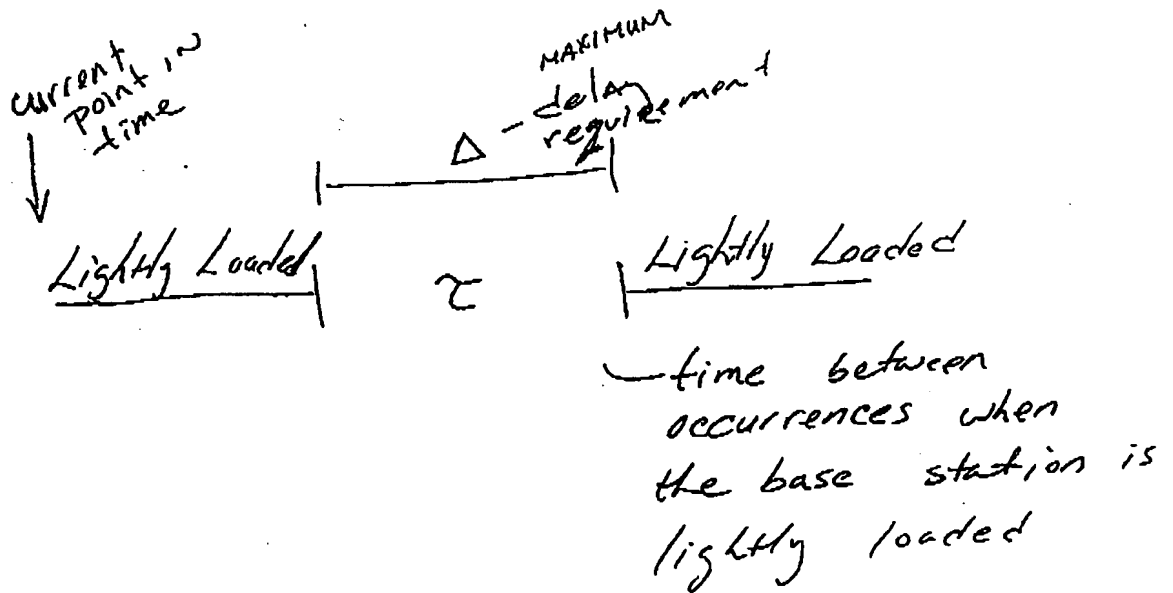 current
point in
time
MAXIMUM
Δ – delay
requirement
Lightly Loaded
τ
Lightly Loaded
time between
occurrences when
the base station is
lightly loaded